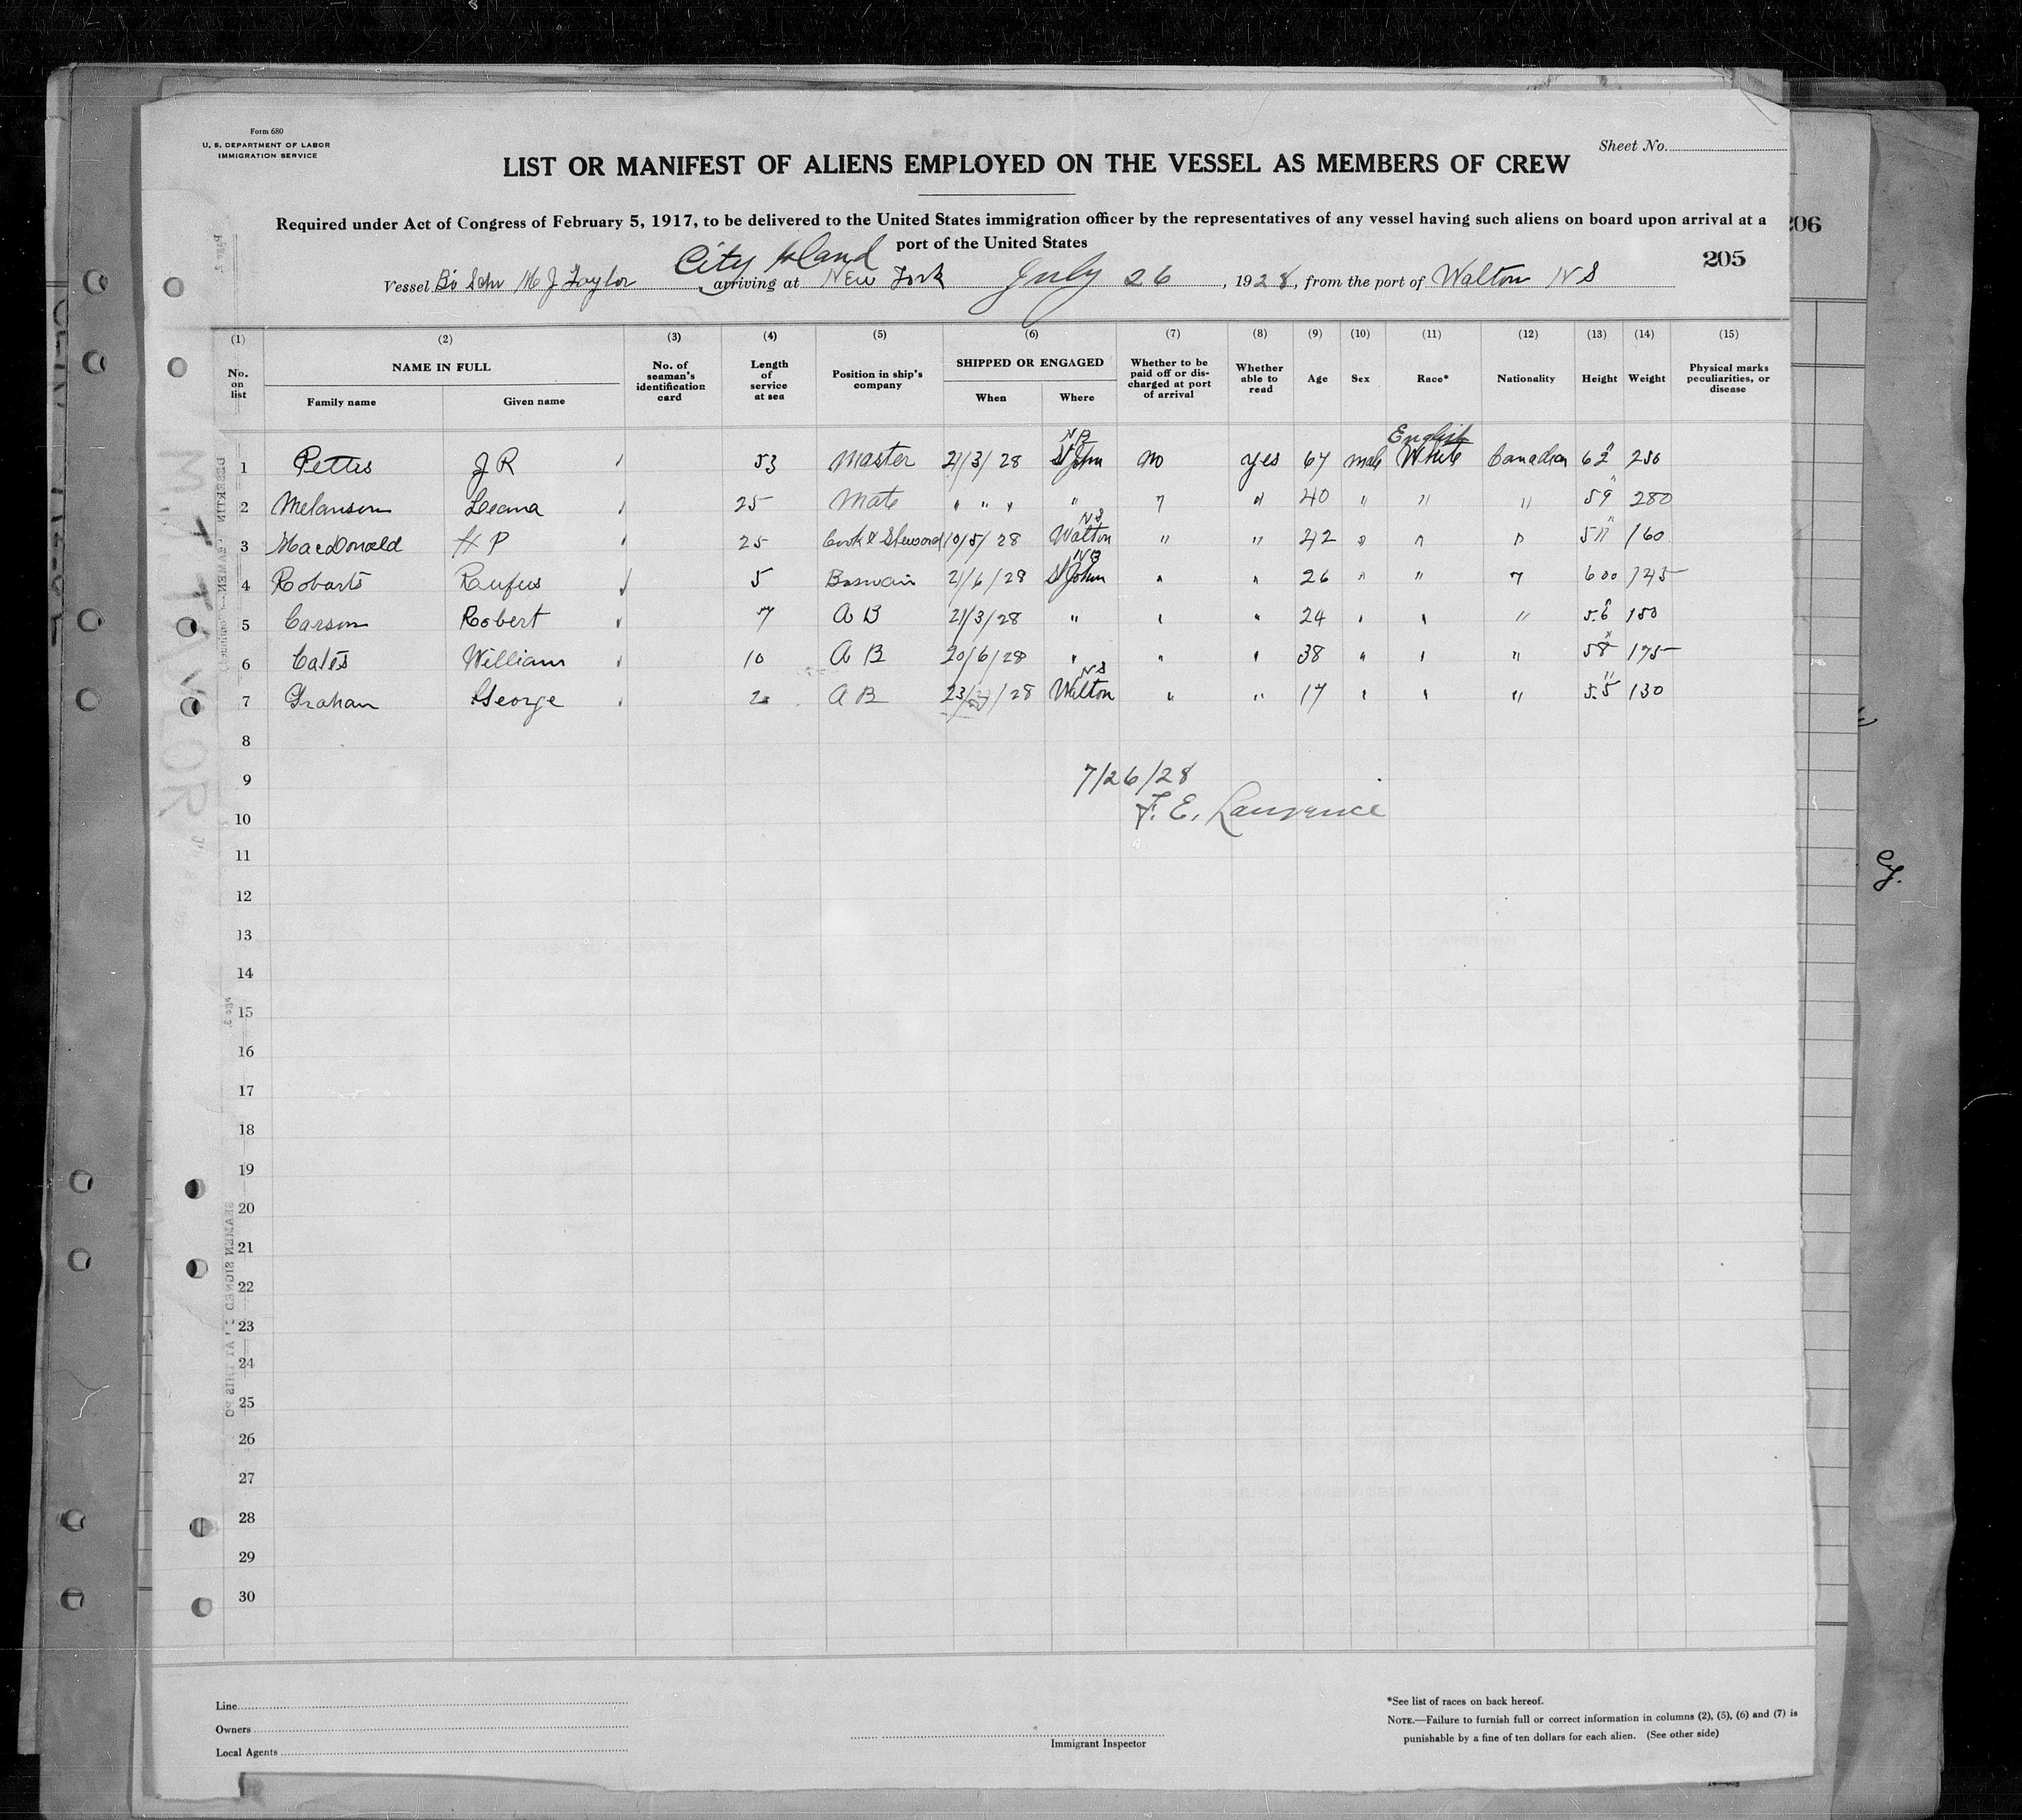 Form 680
U. S. DEPARTMENT OF LABOR
IMMIGRATION SERVICE
Sheet No.
LIST OR MANIFEST OF ALIENS EMPLOYED ON THE VESSEL AS MEMBERS OF CREW
Required under Act of Congress of February 5, 1917, to be delivered to the United States immigration officer by the representatives of any vessel having such aliens on board upon arrival at a
port of the United States
206
205
City Island
Vessel Br Schr M J Taylor, arriving at New York July 26, 1928, from the port of Walton N S
(1) (2) (3) (4) (5) (6) (7) (8) (9) (10) (11) (12) (13) (14) (15)
No. on list NAME IN FULL Family name Given name No. of seaman's identification card Length of service at sea Position in ship's company SHIPPED OR ENGAGED When Where Whether to be paid off or discharged at port of arrival Whether able to read Age Sex Race* Nationality Height Weight Physical marks peculiarities, or disease
N B English
1 Pettis J R 53 Master 21/3/28 St John No yes 67 male White Canadian 6 2" 250
2 Melanson Leana 25 Mate " " " " " " 40 " " " 5 9" 280
N S
3 MacDonald H P 25 Cook & Steward 10/5/28 Walton " " 42 " " " 5 11" 160
N B
4 Robarts Rufus 5 Boswain 2/6/28 St John " " 26 " " " 6 00 145
5 Carson Robert 7 A B 21/3/28 " " " 24 " " " 5.6" 150
6 Cates William 10 A B 20/6/28 " " " 38 " " " 5 8" 175
N S
7 Graham George 2 A B 23/ /28 Walton " " 17 " " " 5.5" 130
8
9
7/26/28
10
F. E. Lawrence
11
12
13
14
15
16
17
18
19
20
21
22
23
24
25
26
27
28
29
30
Line
Owners
Local Agents
Immigrant Inspector
*See list of races on back hereof.
NOTE.—Failure to furnish full or correct information in columns (2), (5), (6) and (7) is
punishable by a fine of ten dollars for each alien. (See other side)